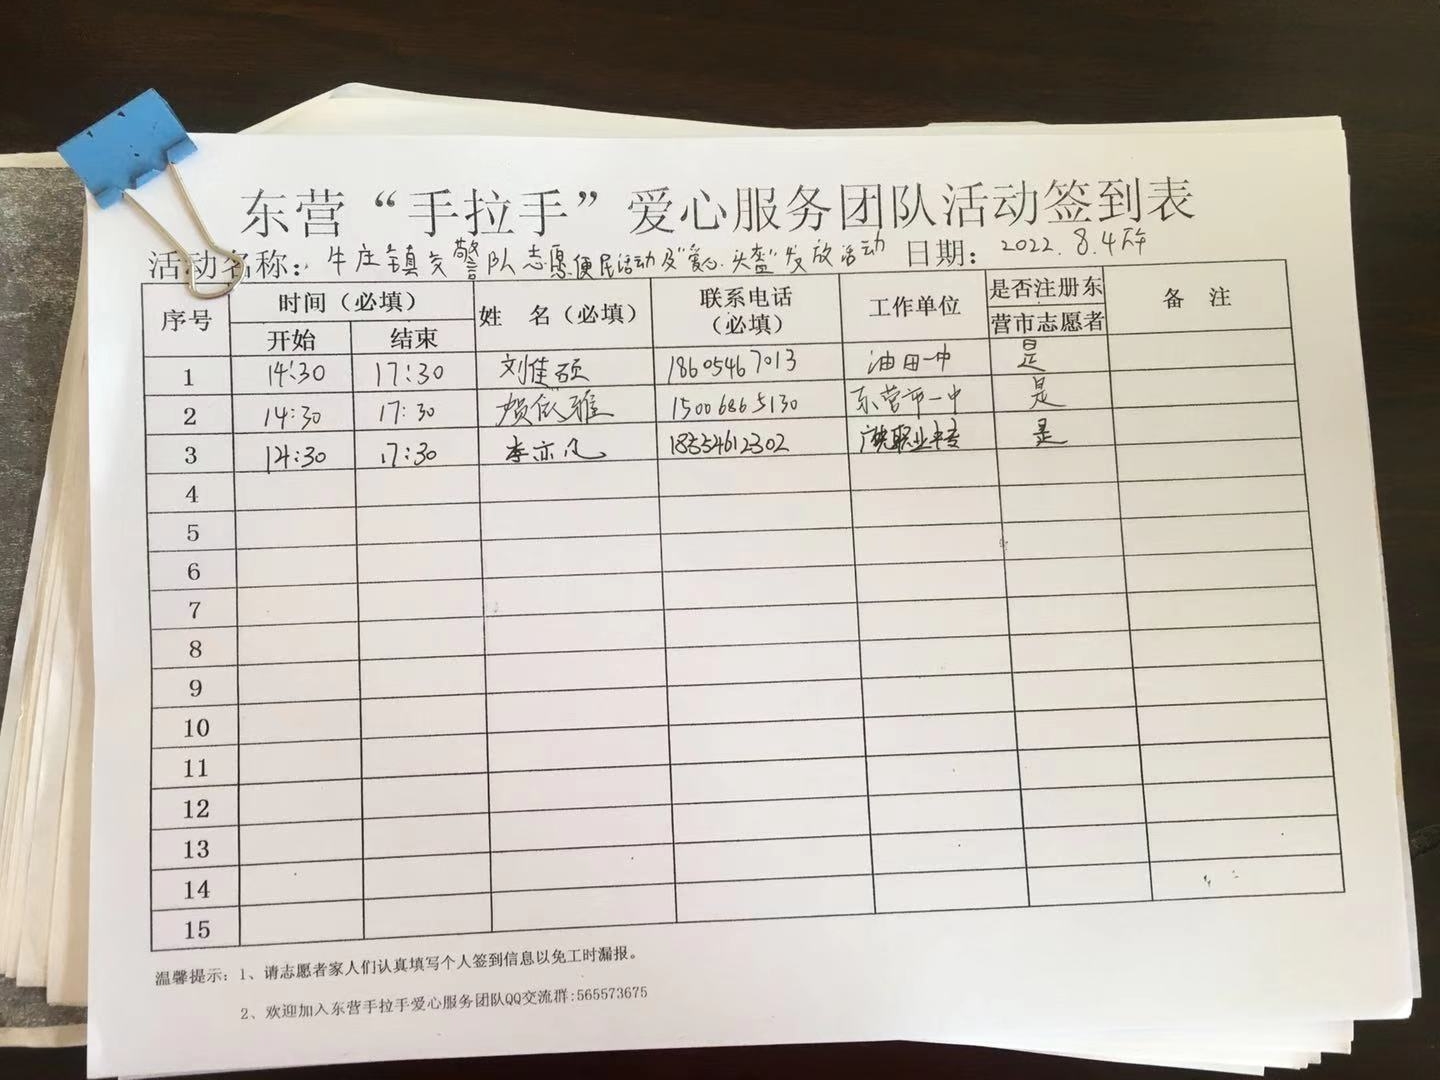 东营“手拉手”爱心服务团队活动签到表
活动名称：牛庄镇交警队志愿便民活动及“爱心头盔”发放活动 日期：2022.8.4下午
序号 时间（必填） 姓 名（必填） 联系电话（必填） 工作单位 是否注册东营市志愿者 备 注
开始 结束
1 14:30 17:30 刘佳硕 18605467013 油田一中 是
2 14:30 17:30 贺依雅 15006865130 东营市一中 是
3 14:30 17:30 李亦凡 18554612302 职业中专 是
4
5
6
7
8
9
10
11
12
13
14
15
温馨提示：1、请志愿者家人们认真填写个人签到信息以免工时漏报。
2、欢迎加入东营手拉手爱心服务团队QQ交流群:565573675